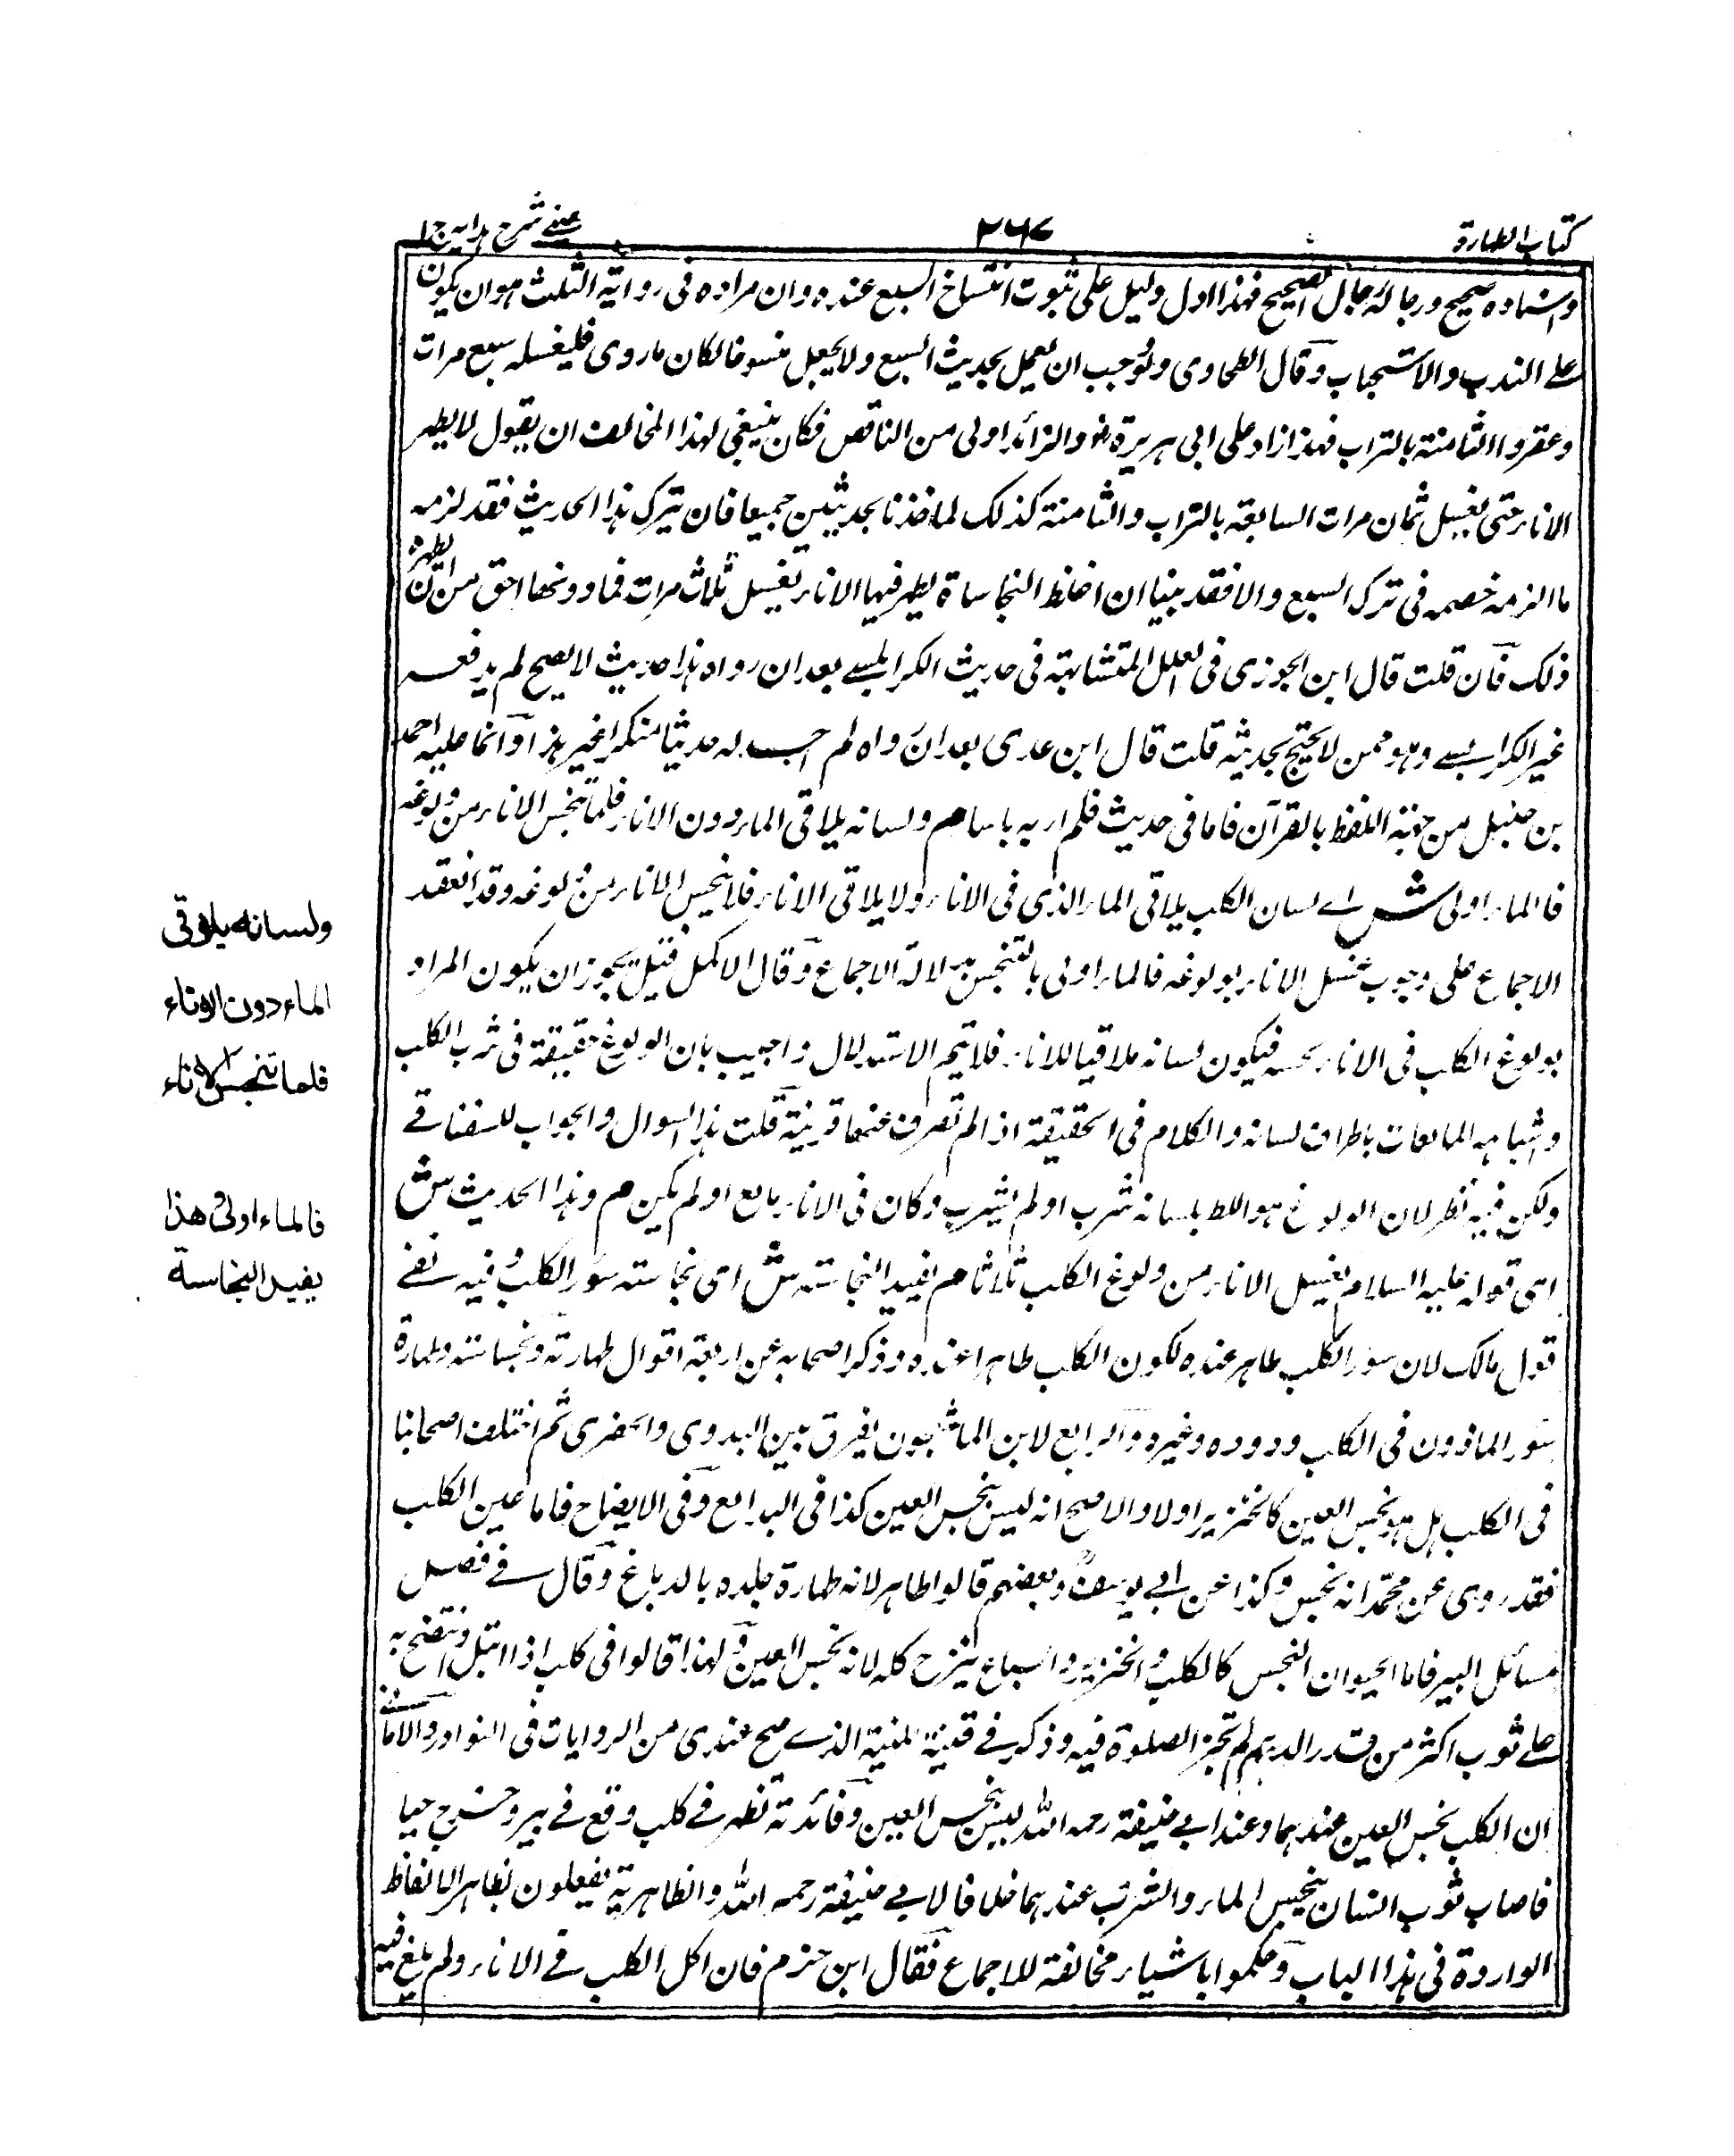 كتاب الطهارة
٢٦٧
عينے شرح ہدايہ ج ١
واسناده صحيح ورجاله رجال الصحيح فهذا ادل دليل على ثبوت انتساخ السبع عنده وان مراده فى رواية الثلث هو ان يكون
على الندب والاستحباب وقال الطحاوى ولو وجب ان يعمل بحديث السبع ولا يجعل منسوخا لكان ما روى فليغسله سبع مرات
وعفروا الثامنة بالتراب فهذا زاد على ابى هريرة رض والزائد اولى من الناقص فكان ينبغى لهذا المخالف ان يقول لا يطهر
الاناء حتى يغسل ثمان مرات السابعة بالتراب والثامنة كذلك لماخذنا بحديثين جميعا فان ترك هذا الحديث فقد لزمه
ما الزمه خصمه فى ترك السبع والا فقد بينا ان اغلظ النجاساة يطهر فيها الاناء بغسل ثلاث مرات فما دونها احق من ان يطهره
ذلك فان قلت قال ابن الجوزى فى العلل المتشابهة فى حديث الكرابيسے بعد ان رواه هذا حديث لا يصح لم يرفعه
غير الكرابيسے وهو ممن لا يحتج بحديثه قلت قال ابن عدى بعد ان رواه لم اجد له حديثا منكرا غير هذا وانما عليه احمد
بن حنبل من جهة اللفظ بالقرآن فاما فى حديث فلم ار به باسا م ولسانه يلاقى الماء دون الاناء فلما تنجس الاناء من ولوغه
فالماء اولى ش اے لسان الكلب يلاقى الماء الذى فى الاناء ولا يلاقى الاناء فلما ينجس الاناء من ولوغه وقد انعقد
الاجماع على وجوب غسل الاناء بولوغه فالماء اولى بالتنجس بدلالة الاجماع وقال الاكمل قيل يجوز ان يكون المراد
بولوغ الكلب فى الاناء لحسه فيكون لسانه ملاقيا للاناء فلا يتم الاستدلال واجيب بان الولوغ حقيقة فى شرب الكلب
واشباهه المايعات باطراف لسانه والكلام فى الحقيقة اذا لم تصرف عنها قرينة قلت هذا السوال والجواب للسغناقے
ولكن فيه نظر لان الولوغ هو اللط بلسانه شرب او لم يشرب وكان فى الاناء مايع او لم يكن م وهذا الحديث ش
اى قوله عليه السلام يغسل الاناء من ولوغ الكلب ثلاثا م يفيد النجاسته ش اى نجاسته سور الكلب وفيه نفے
قول مالك لان سور الكلب طاهر عنده لكون الكلب طاهرا عنده وذكر اصحابه عن اربعة اقوال طهارته ونجاسته وطهارة
سور الماذون فى الكلب ودوده وغيره والرابع لابن الماجشون يفرق بين البدوى والحضرى ثم اختلف اصحابنا
فى الكلب هل هو نجس العين كالخنزير اولا والاصح انه ليس بنجس العين كذا فى البدايع وفى الايضاح فاما عين الكلب
فقد روى عن محمد انه نجس وكذا عن ابے يوسف وبعضهم قالوا طاهر لانه طهارة جلده بالدباغ وقال فے فصل
مسائل البير فاما الحيوان النجس كالكلب والخنزير والسباع ينزح كله لانه نجس العين ولهذا قالوا فى كلب اذا ابتل وانتضح به
علے ثوب اكثر من قدر الدرهم لم تجز الصلوة فيه وذكر فے قنية المنية الذے صح عندى من الروايات فى النوادر والامالے
ان الكلب نجس العين عندهما وعند ابے حنيفة رحمه الله ليس بنجس العين وفائدته تظهر فے كلب وقع فے بير وخرج حيا
فاصاب ثوب انسان ينجس الماء والثوب عندهما خلافا لابے حنيفة رحمه الله والظاهرية يفعلون بظاهر الالفاظ
الواردة فى هذا الباب وحكموا باشياء مخالفة للاجماع فقال ابن حزم فان اكل الكلب فے الاناء ولم يلغ فيه
ولسانه يلاقى
الماء دون الاناء
فلما تنجس الاناء
فالماء اولى وهذا
يفيد النجاسة